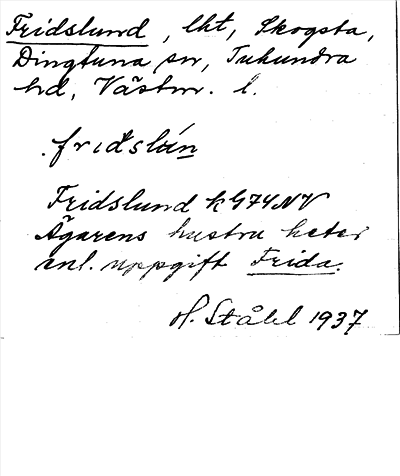 Fridslund, lht, Skogsta,
Dingtuna sn, Tuhundra
hd, Västm. l.
fridslún
Fridslund k G74NV
Ägarens hustru heter
enl. uppgift Frida.
H. Ståhl 1937